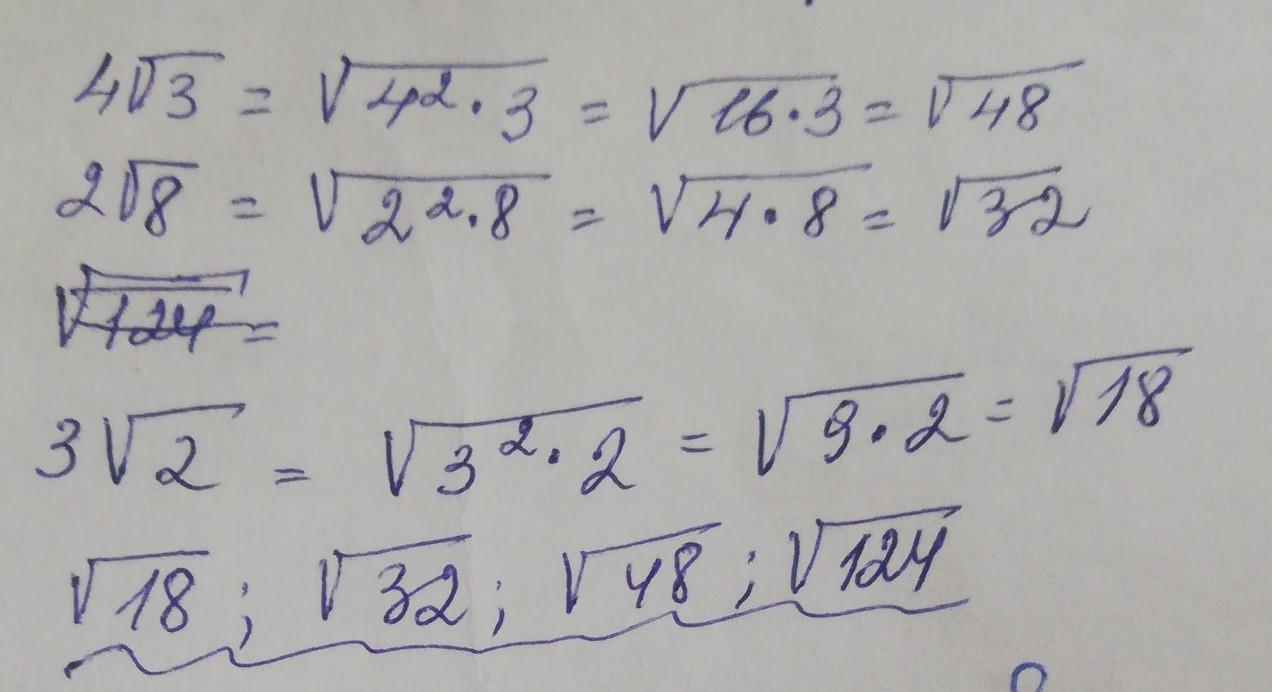 4√3 = √4²·3 = √16·3 = √48
2√8 = √2²·8 = √4·8 = √32
√124 =
3√2 = √3²·2 = √9·2 = √18
√18 ; √32 ; √48 ; √124